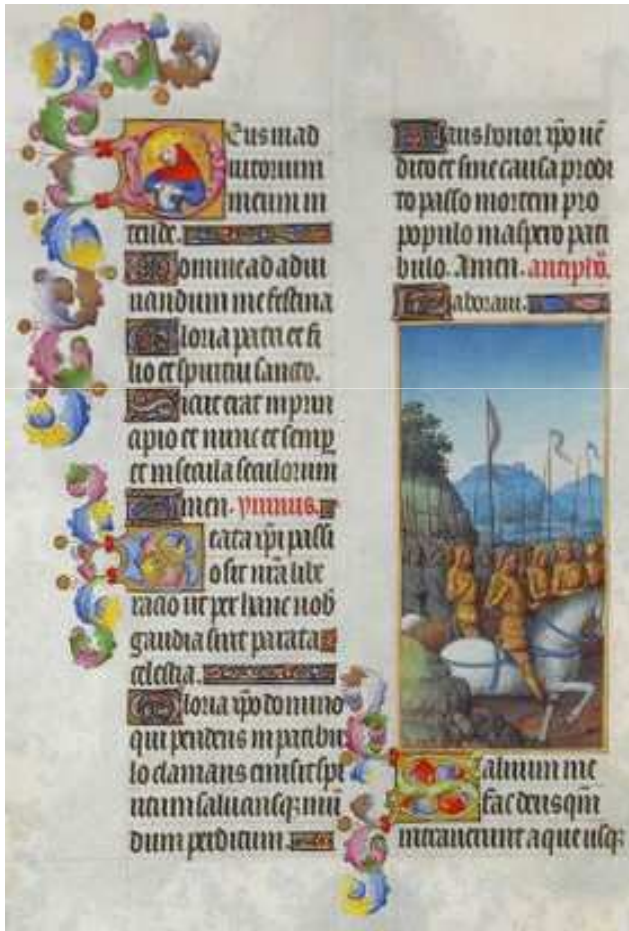 Deus in ad
iutorium
meum in
tende.
Domine ad adiu
uandum me festina
Gloria patri et fi
lio et spiritui sancto.
Sicut erat in prin
cipio et nunc et semꝑ
et in secula seculorum
Amen. ymnus.
Beata xp̄i passi
o sit nr̄a libe
racio ut per hanc nob
gaudia sint parata
celestia.
Gloria xp̄o domino
qui pendens in patibu
lo clamans emisit spi
ritum saluansq; mū
dum perditum.
Laus honor xp̄o uē
dito et sine causa prodi
to passo mortem pro
populo in aspero pati
bulo. Amen. antiphō.
Laboraui.
Saluum me
fac deus qm̄
intrauerunt aque usq;